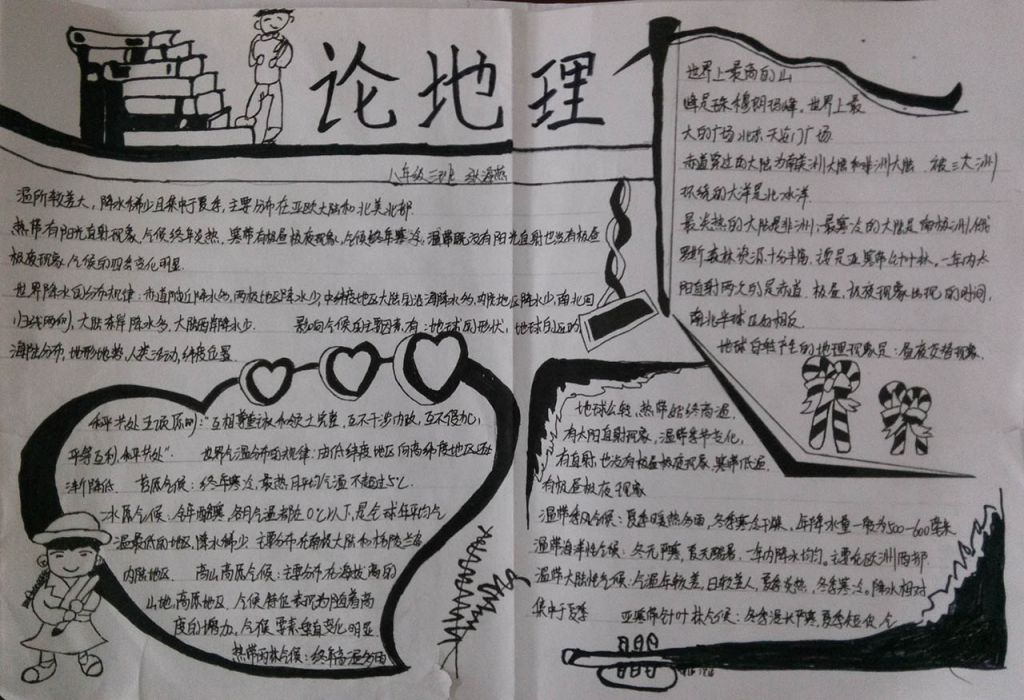 论地理
八年级三班
温所较差大，降水稀少且集中于夏季，主要分布在亚欧大陆和北美北部
热带有阳光直射现象，气候终年炎热，寒带有极昼极夜现象，气候终年寒冷，温带既没有阳光直射也没有极昼
极夜现象，气候的四季变化明显
世界降水的分布规律：赤道附近降水多，两极地区降水少，中纬度地区大陆沿海降水多，内陆地区降水少，南北回
归线两侧，大陆东岸降水多，大陆西岸降水少. 影响气候的主要因素有：地球的形状，地球的
海陆分布，地形地势，人类活动，纬度位置
和平共处五项原则："互相尊重领土完整，互不干涉内政，互不侵犯，
平等互利，和平共处". 世界气温分布的规律：由低纬度地区向高纬度地区逐
渐降低. 苔原气候：终年寒冷，最热月平均气温不超过5℃.
冰原气候：全年酷寒，各月气温都在0℃以下，是全球年平均气
温最低的地区，降水稀少. 主要分布在南极大陆和格陵兰岛
内陆地区. 高山高原气候：主要分布在海拔高的
山地，高原地区. 气候特征表现为随着高
度的增加，气候要素垂直变化明显.
热带雨林气候：终年高温多雨
世界上最高的山
峰是珠穆朗玛峰. 世界上最
大的广场北京天安门广场
赤道穿过的大陆为南美洲大陆和非洲大陆. 被三大洲
环绕的大洋是北冰洋
最炎热的大陆是非洲；最寒冷的大陆是南极洲俄
罗斯森林资源十分丰富，主要是亚寒带针叶林. 一年内太
阳直射两次的是赤道. 极昼、极夜现象出现的时间，
南北半球正好相反.
地球自转产生的地理现象是：昼夜交替现象.
地球公转，热带始终高温，
有太阳直射现象，温带季节变化，
有直射，也没有极昼极夜现象，寒带低温
有极昼极夜现象
温带季风气候：夏季暖热多雨，冬季寒冷干燥，年降水量一般为500-600毫米
温带海洋性气候：冬无严寒，夏无酷暑. 一年内降水均匀. 主要在欧洲西部
温带大陆性气候：气温年较差，日较差大，夏季炎热，冬季寒冷。降水相对
集中于夏季 亚寒带针叶林气候：冬季漫长严寒，夏季短促